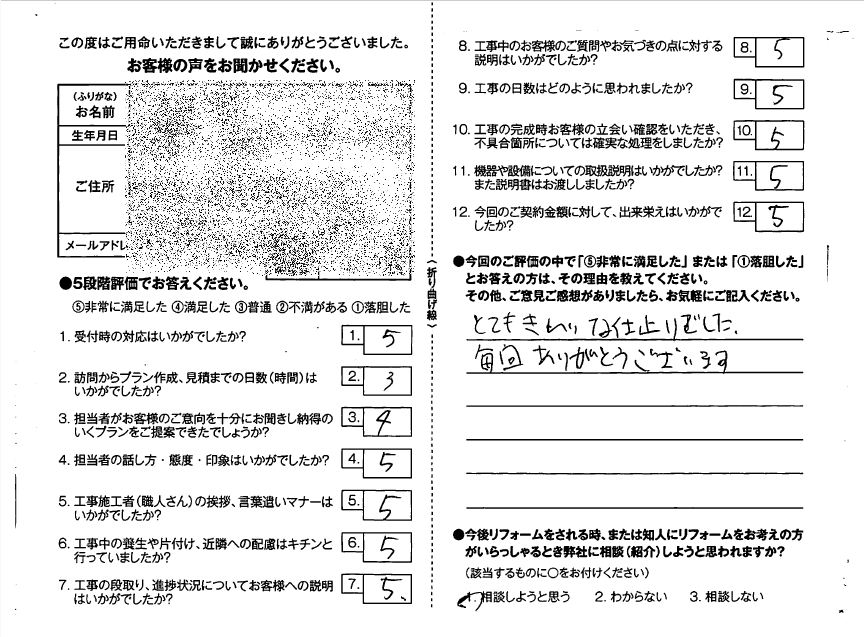 この度はご用命いただきまして誠にありがとうございました。
お客様の声をお聞かせください。
(ふりがな)
お名前
生年月日
ご住所
メールアドレ
●5段階評価でお答えください。
⑤非常に満足した ④満足した ③普通 ②不満がある ①落胆した
1. 受付時の対応はいかがでしたか? 1. 5
2. 訪問からプラン作成、見積までの日数(時間)は 2. 3
いかがでしたか?
3. 担当者がお客様のご意向を十分にお聞きし納得の 3. 4
いくプランをご提案できたでしょうか?
4. 担当者の話し方・態度・印象はいかがでしたか? 4. 5
5. 工事施工者(職人さん)の挨拶、言葉遣いマナーは 5. 5
いかがでしたか?
6. 工事中の養生や片付け、近隣への配慮はキチンと 6. 5
行っていましたか?
7. 工事の段取り、進捗状況についてお客様への説明 7. 5
はいかがでしたか?
〈折り曲げ線〉
8. 工事中のお客様のご質問やお気づきの点に対する 8. 5
説明はいかがでしたか?
9. 工事の日数はどのように思われましたか? 9. 5
10. 工事の完成時お客様の立会い確認をいただき、 10. 5
不具合箇所については確実な処理をしましたか?
11. 機器や設備についての取扱説明はいかがでしたか? 11. 5
また説明書はお渡ししましたか?
12. 今回のご契約金額に対して、出来栄えはいかがで 12. 5
したか?
●今回のご評価の中で「⑤非常に満足した」または「①落胆した」
とお答えの方は、その理由を教えてください。
その他、ご意見ご感想がありましたら、お気軽にご記入ください。
とてもきれいな仕上りでした.
毎回ありがとうございます
●今後リフォームをされる時、または知人にリフォームをお考えの方
がいらっしゃるとき弊社に相談(紹介)しようと思われますか?
(該当するものに○をお付けください)
1. 相談しようと思う 2. わからない 3. 相談しない